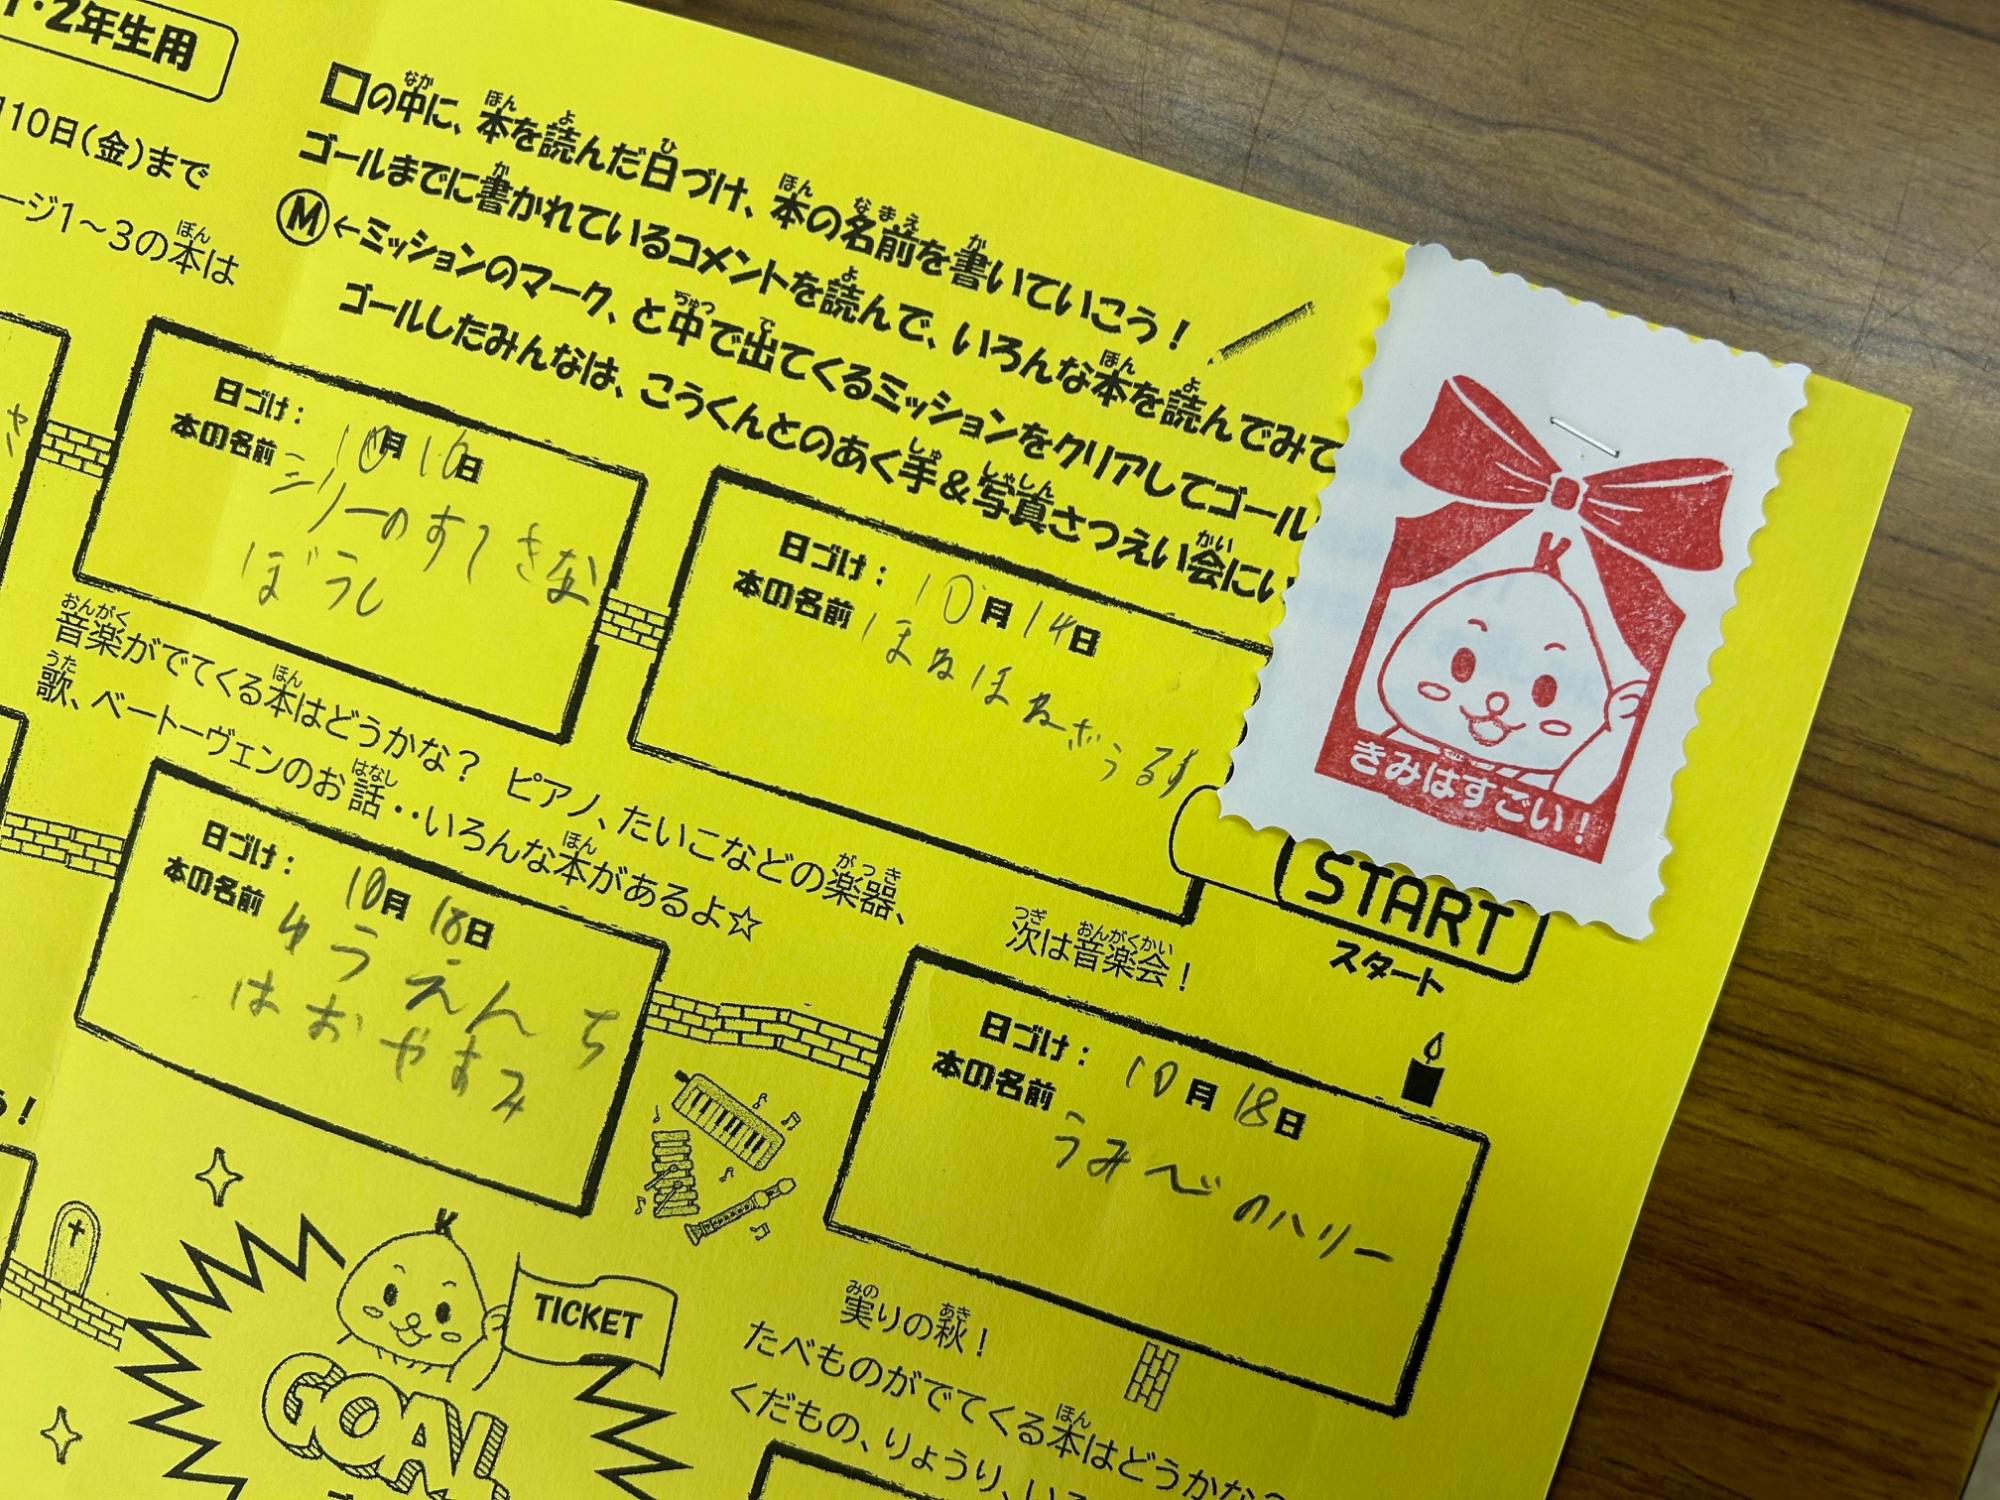 1・2年生用
10日(金)まで
ージ1〜3の本は
ほん
□の中に、本を読んだ日づけ、本の名前を書いていこう！
なか ほん よ ひ ほん なまえ か
ゴールまでに書かれているコメントを読んで、いろんな本を読んでみて
か よ ほん よ
Ⓜ←ミッションのマーク、と中で出てくるミッションをクリアしてゴール
ちゅう で
ゴールしたみんなは、こうくんとのあく手＆写真さつえい会にい
しゅ しゃしん かい
きみはすごい！
START
スタート
日づけ： 10月14日
本の名前 ほねほねざうるす
日づけ： 10月16日
本の名前 ジリーのすてきな
ぼうし
音楽がでてくる本はどうかな？ ピアノ、たいこなどの楽器、
おんがく ほん がっき
歌、ベートーヴェンのお話・・いろんな本があるよ☆
うた はなし ほん
次は音楽会！
つぎ おんがくかい
日づけ： 10月18日
本の名前 ゆうえんち
はおやすみ
日づけ： 10月18日
本の名前 うみべのハリー
実りの秋！
みの あき
たべものがでてくる本はどうかな？
ほん
くだもの、りょうり、い
TICKET
GOAL